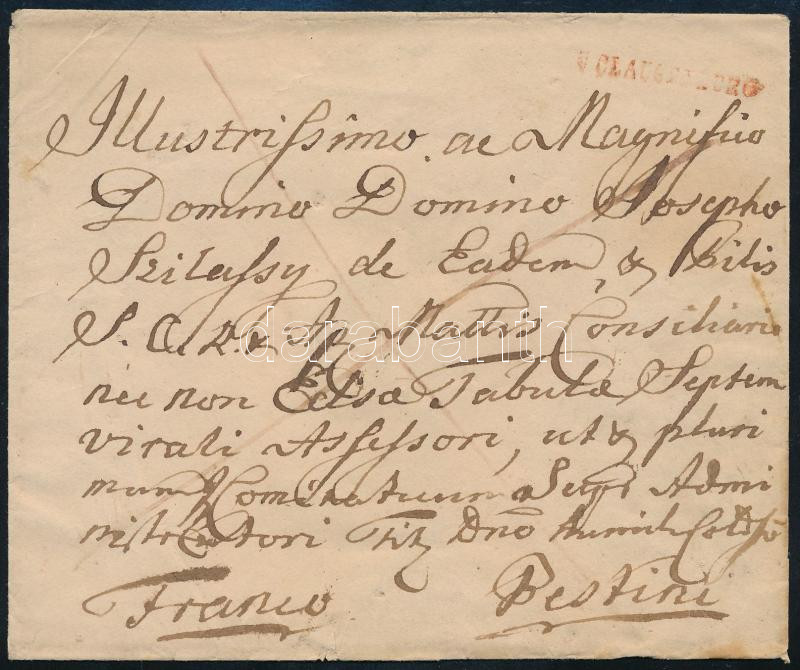 V CLAUSENBURG
Illustrissimo ac Magnifico
Domino Domino Josepho
Szilassy de Eadem, & Pilis
S. C. R. & Ap. Mattis Consiliario
nec non Eclsae Tabulae Septem
virali Assessori, ut & pluri
mum Comitatuum Supr Admi
nistratori Titz Dno
Franco Pestini
darabanth